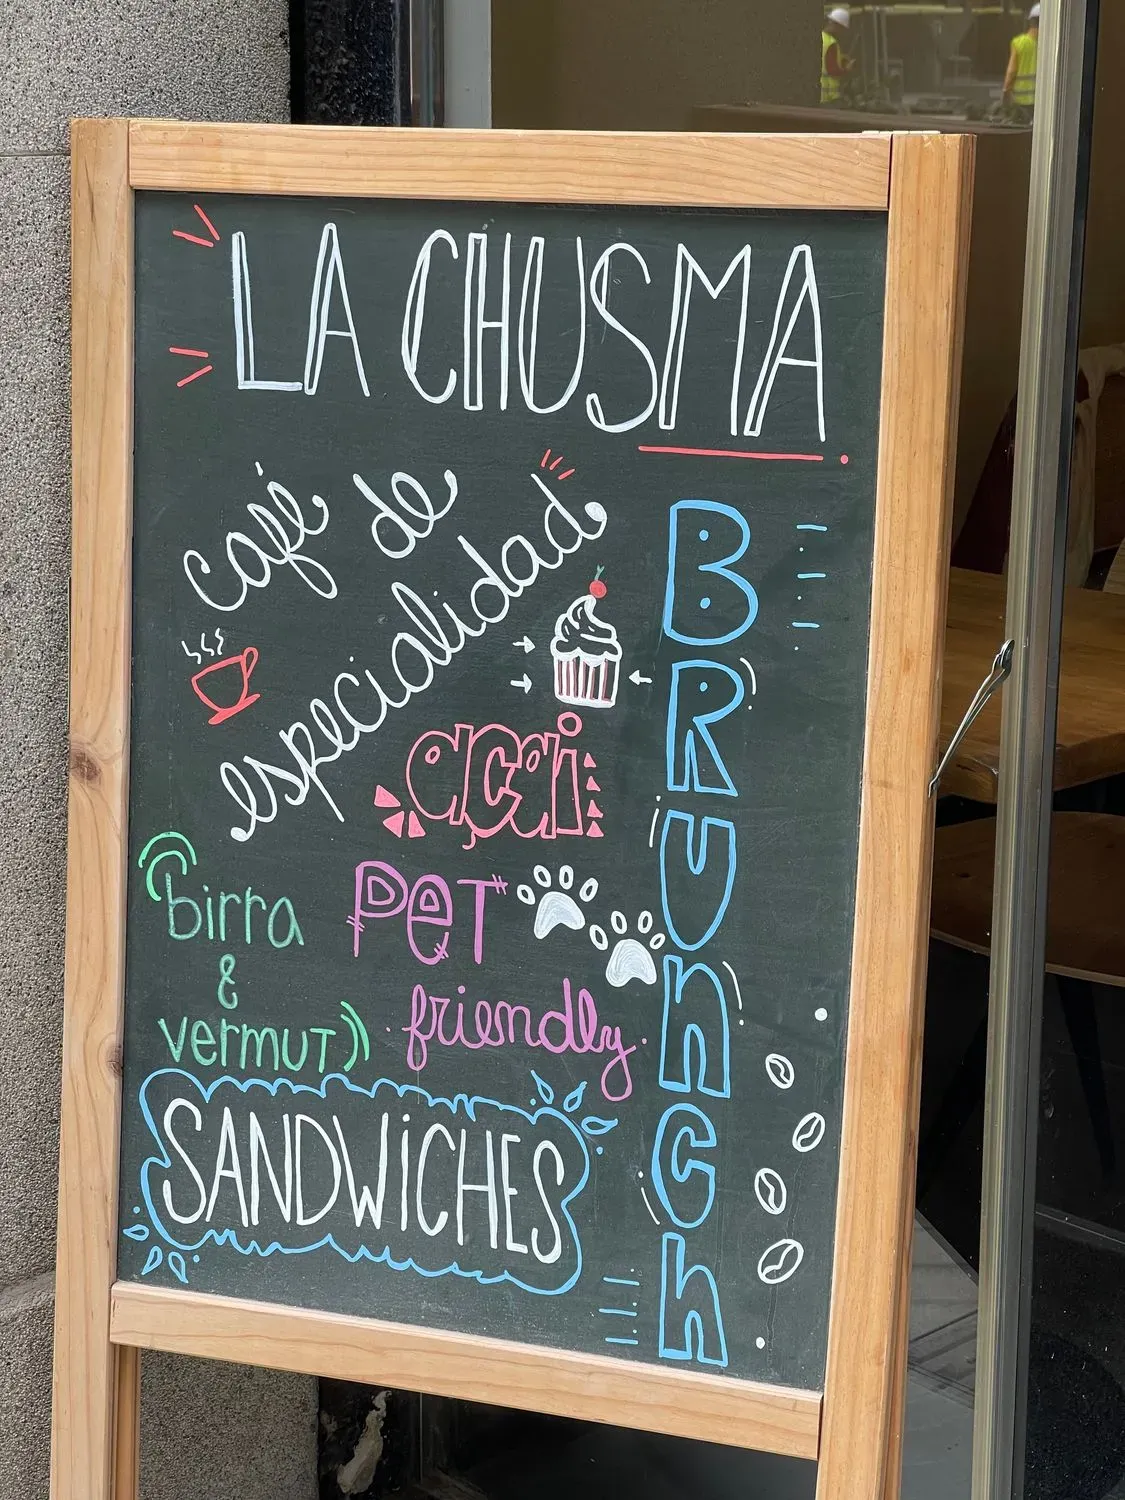 LA CHUSMA
café de
especialidad
BRUNCH
açai
birra
&
vermut
PET
friendly
SANDWICHES